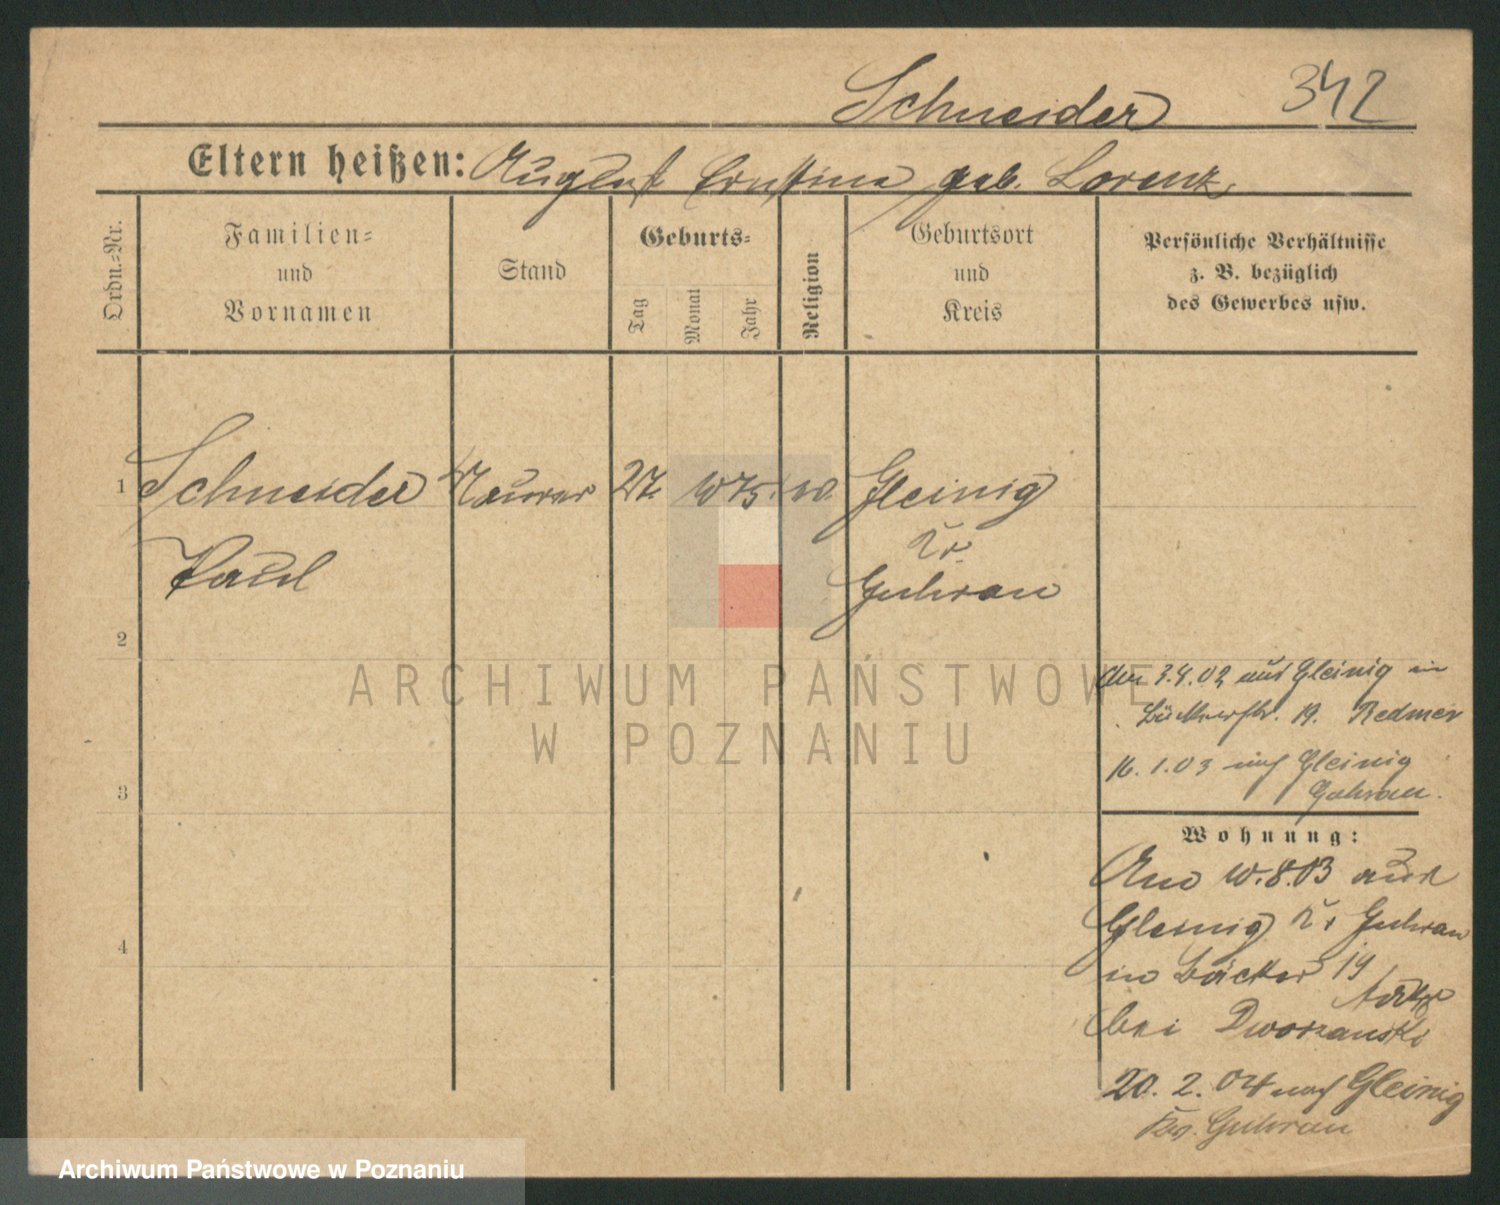 Schneider 342
Eltern heißen: August Ernstina geb. Lorenz
Ordn.-Nr.
Familien-
und
Vornamen
Stand
Geburts-
Tag
Monat
Jahr
Religion
Geburtsort
und
Kreis
Persönliche Verhältnisse
z. B. bezüglich
des Gewerbes usw.
1 Schneider Maurer 27. 10 75. Gleinig
Kr
Paul Guhrau
2
3
4
den 3.4.02 aus Gleinig in
19. Redmer
16. 1.03 nach Gleinig
Guhrau.
Wohnung:
Am 10.8.03 aus
Gleinig Kr Guhrau
in Bäcker 19
bei Dworzanski
20. 2. 04 nach Gleinig
Guhrau
ARCHIWUM PAŃSTWOWE
W POZNANIU
Archiwum Państwowe w Poznaniu